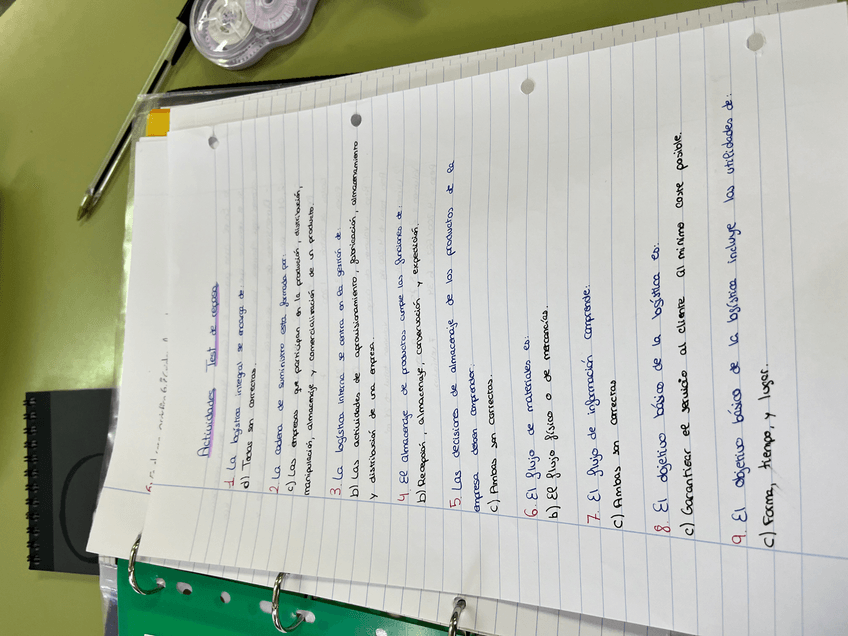 Actividades Test de repaso
1. La logística integral se encarga de:
d) Todas son correctas.
2. La cadena de suministro esta formada por:
c) Las empresas que participan en la producción, distribución,
manipulación, almacenaje y comercialización de un producto.
3. La logística interna se centra en la gestión de:
b) Las actividades de aprovisionamiento, fabricación, almacenamiento
y distribución de una empresa.
4. El almacenaje de productos cumple las funciones de:
b) Recepción, almacenaje, conservación y expedición.
5. Las decisiones de almacenaje de los productos de la
empresa deben comprender:
c) Ambas son correctas.
6. El flujo de materiales es:
b) El flujo físico o de mercancías.
7. El flujo de información comprende:
c) Ambas son correctas
8. El objetivo básico de la logística es:
c) Garantizar el servicio al cliente al mínimo coste posible.
9. El objetivo básico de la logística incluye las utilidades de:
c) Forma, tiempo, y lugar.